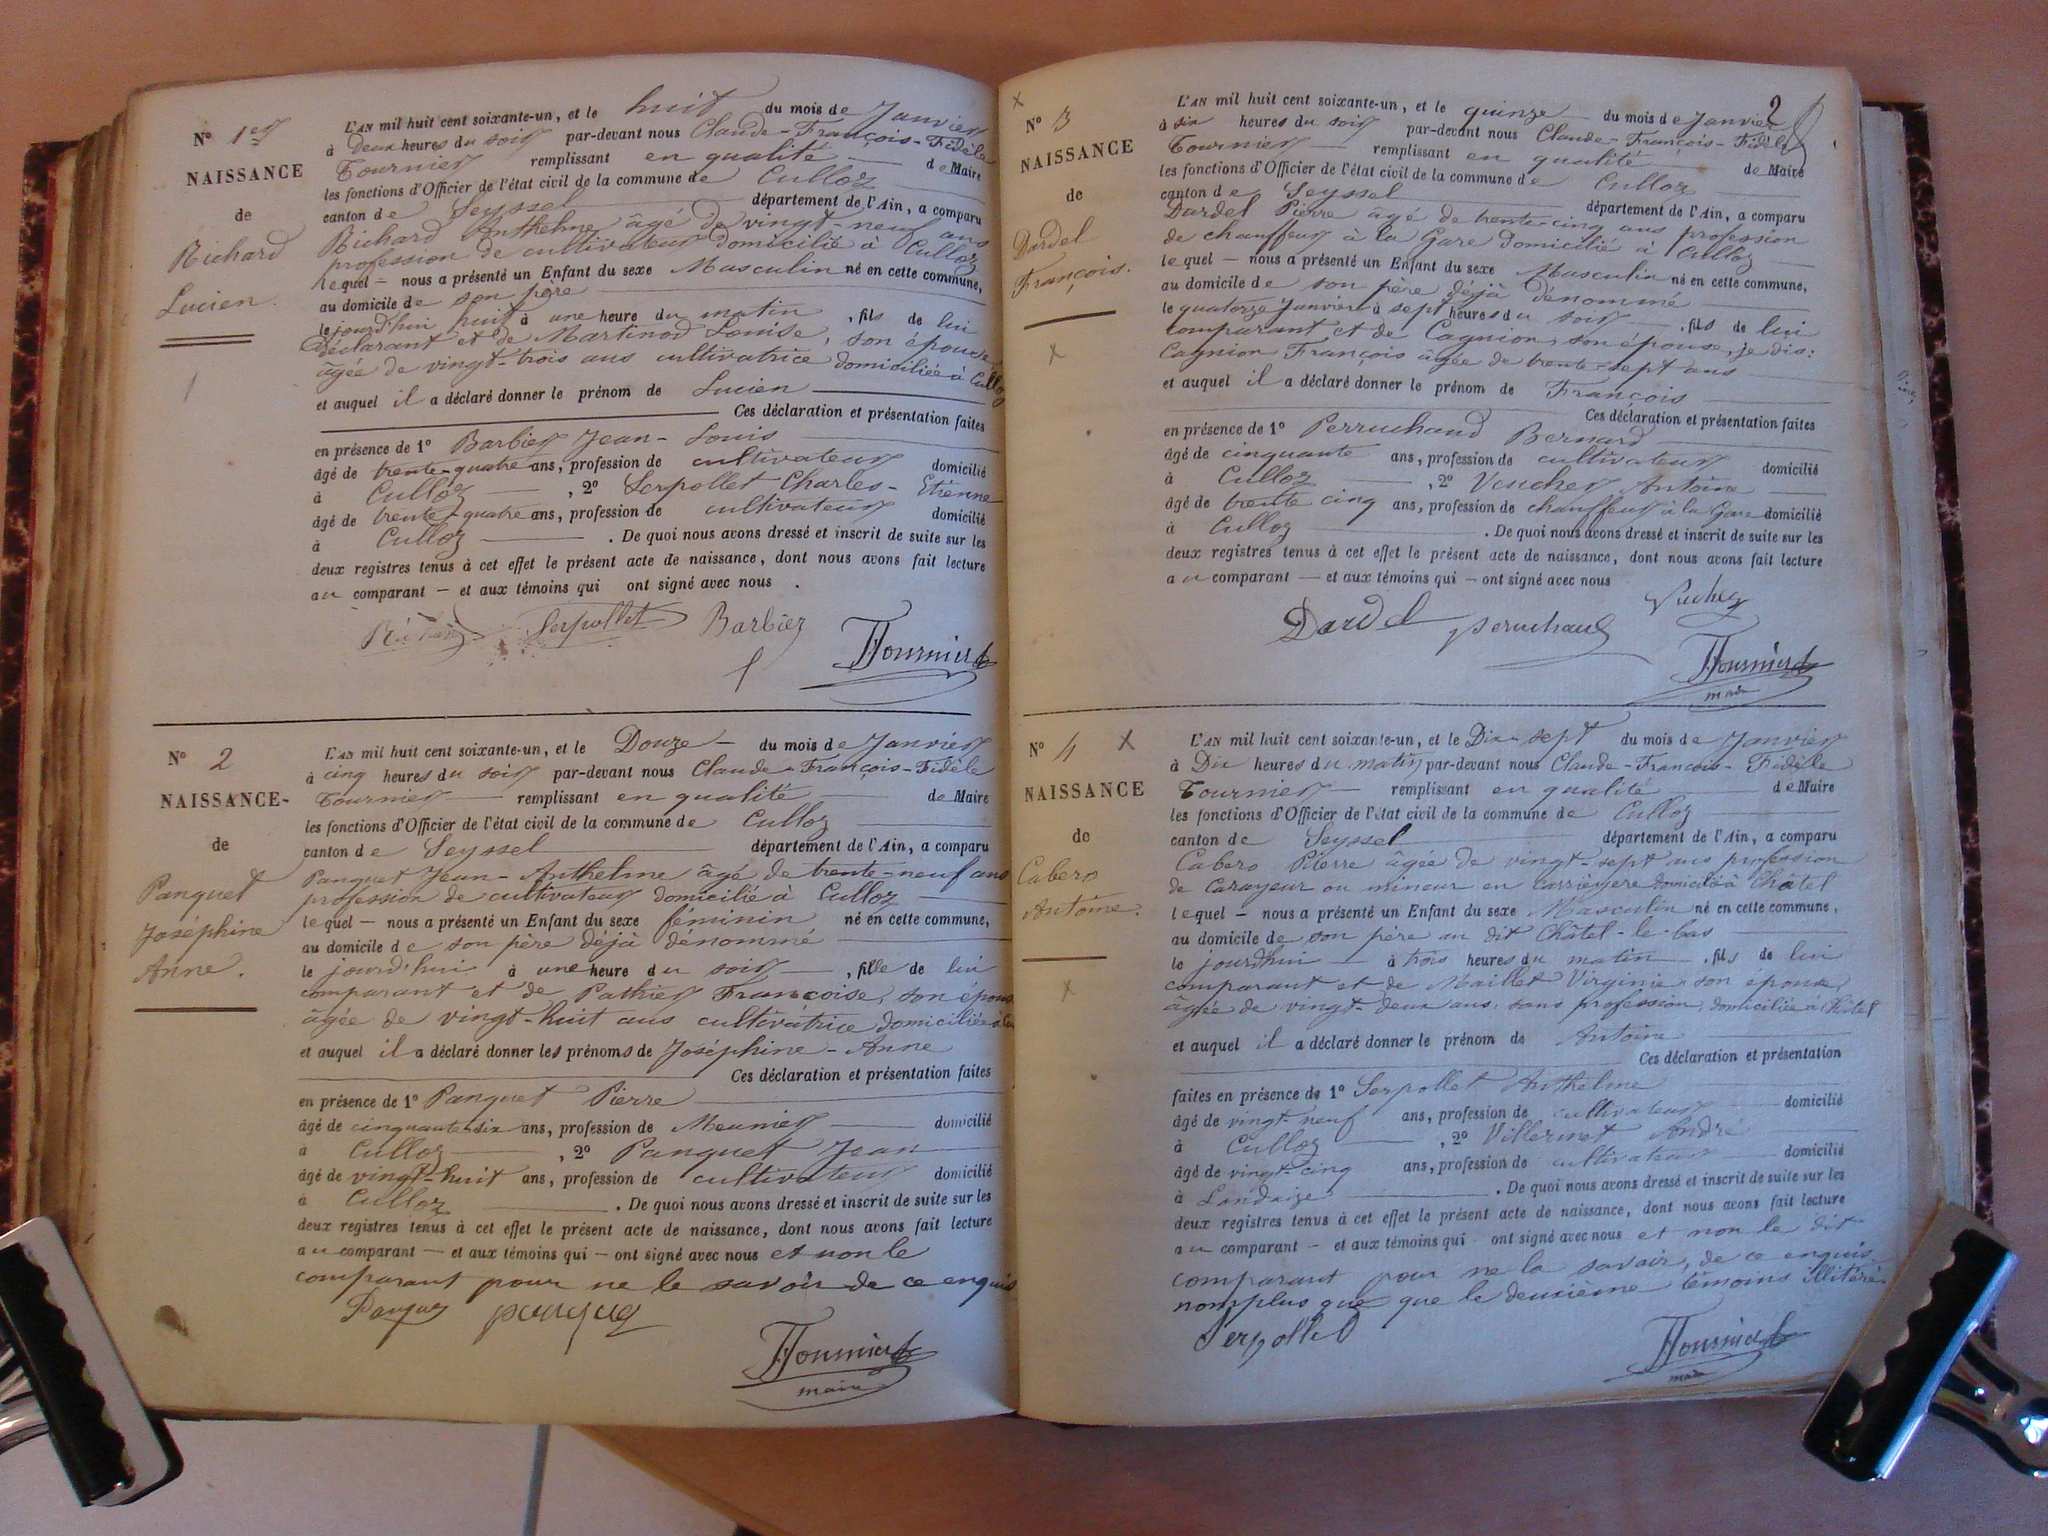 N° 1er
NAISSANCE
de
Richard
Lucien.
L'AN mil huit cent soixante-un, et le huit du mois de Janvier
à Deux heures du soir par-devant nous Claude-François-Fidèle
Tournier remplissant en qualité de Maire
les fonctions d'Officier de l'état civil de la commune de Culloz
canton de Seyssel département de l'Ain, a comparu
Richard Anthelme âgé de vingt-neuf ans
profession de cultivateur domicilié à Culloz
lequel — nous a présenté un Enfant du sexe Masculin né en cette commune,
au domicile de son père
le jourd'hui huit à une heure du matin, fils de lui
déclarant et de Martinod Louise, son épouse
âgée de vingt-trois ans cultivatrice domiciliée à Culloz
et auquel il a déclaré donner le prénom de Lucien
Ces déclaration et présentation faites
en présence de 1° Barbier Jean-Louis
âgé de trente-quatre ans, profession de cultivateur domicilié
à Culloz, 2° Serpollet Charles-Etienne
âgé de trente-quatre ans, profession de cultivateur domicilié
à Culloz. De quoi nous avons dressé et inscrit de suite sur les
deux registres tenus à cet effet le présent acte de naissance, dont nous avons fait lecture
au comparant — et aux témoins qui ont signé avec nous.
Richard Serpollet Barbier
Tournier
N° 2
NAISSANCE-
de
Panquet
Joséphine
Anne.
L'AN mil huit cent soixante-un, et le Douze — du mois de Janvier
à cinq heures du soir par-devant nous Claude-François-Fidèle
Tournier — remplissant en qualité de Maire
les fonctions d'Officier de l'état civil de la commune de Culloz
canton de Seyssel département de l'Ain, a comparu
Panquet Jean-Anthelme âgé de trente-neuf ans
profession de cultivateur domicilié à Culloz
lequel — nous a présenté un Enfant du sexe féminin né en cette commune,
au domicile de son père déjà dénommé
le jourd'hui à une heure du soir —, fille de lui
comparant et de Pathier Françoise, son épouse
âgée de vingt-huit ans cultivatrice domiciliée à
et auquel il a déclaré donner les prénoms de Joséphine-Anne
Ces déclaration et présentation faites
en présence de 1° Panquet Pierre
âgé de cinquante-six ans, profession de Meunier — domicilié
à Culloz, 2° Panquet Jean
âgé de vingt-huit ans, profession de cultivateur domicilié
à Culloz. De quoi nous avons dressé et inscrit de suite sur les
deux registres tenus à cet effet le présent acte de naissance, dont nous avons fait lecture
au comparant — et aux témoins qui — ont signé avec nous et non le
comparant pour ne le savoir de ce enquis
Tournier
maire
2
N° 3
NAISSANCE
de
Dardel
François.
L'AN mil huit cent soixante-un, et le quinze du mois de Janvier
à six heures du soir par-devant nous Claude-François-Fidèle
Tournier — remplissant en qualité de Maire
les fonctions d'Officier de l'état civil de la commune de Culloz
canton de Seyssel département de l'Ain, a comparu
Dardel Pierre âgé de trente-cinq ans profession
de chauffeur à la Gare Domicilié à Culloz
lequel — nous a présenté un Enfant du sexe Masculin né en cette commune,
au domicile de son père déjà dénommé
le quatorze Janvier à sept heures du soir —, fils de lui
comparant et de Cagnion, son épouse, je dis:
Cagnion François âgée de trente-sept ans
et auquel il a déclaré donner le prénom de François
Ces déclaration et présentation faites
en présence de 1° Perruchaud Bernard
âgé de cinquante ans, profession de cultivateur domicilié
à Culloz, 2° Vucher Antoine
âgé de trente cinq ans, profession de chauffeur à la Gare domicilié
à Culloz. De quoi nous avons dressé et inscrit de suite sur les
deux registres tenus à cet effet le présent acte de naissance, dont nous avons fait lecture
au comparant — et aux témoins qui — ont signé avec nous
Vucher
Dardel peruchaud
Tournier
maire
N° 4
NAISSANCE
de
Cabero
Antoine.
L'AN mil huit cent soixante-un, et le Dix-sept du mois de Janvier
à Dix heures du matin par-devant nous Claude-François-Fidèle
Tournier — remplissant en qualité de Maire
les fonctions d'Officier de l'état civil de la commune de Culloz
canton de Seyssel département de l'Ain, a comparu
Cabero Pierre âgée de vingt-sept ans profession
de Carayeur ou mineur en carrièyere domicilié à Châtel
lequel — nous a présenté un Enfant du sexe Masculin né en cette commune,
au domicile de son père au dit Châtel-le-bas
le jourd'hui — à trois heures du matin —, fils de lui
comparant et de Maillet Virginie son épouse,
âgée de vingt-deux ans, sans profession, domiciliée à Châtel
et auquel il a déclaré donner le prénom de Antoine
Ces déclaration et présentation
faites en présence de 1° Serpollet Anthelme
âgé de vingt-neuf ans, profession de cultivateur domicilié
à Culloz, 2° Villermet André
âgé de vingt-cinq ans, profession de cultivateur domicilié
à Landaize. De quoi nous avons dressé et inscrit de suite sur les
deux registres tenus à cet effet le présent acte de naissance, dont nous avons fait lecture
au comparant — et aux témoins qui ont signé avec nous et non le dit
comparant pour ne la savoir, de ce enquis
nomplus que que le deuxième témoins illitéré.
Serpollet
Tournier
maire